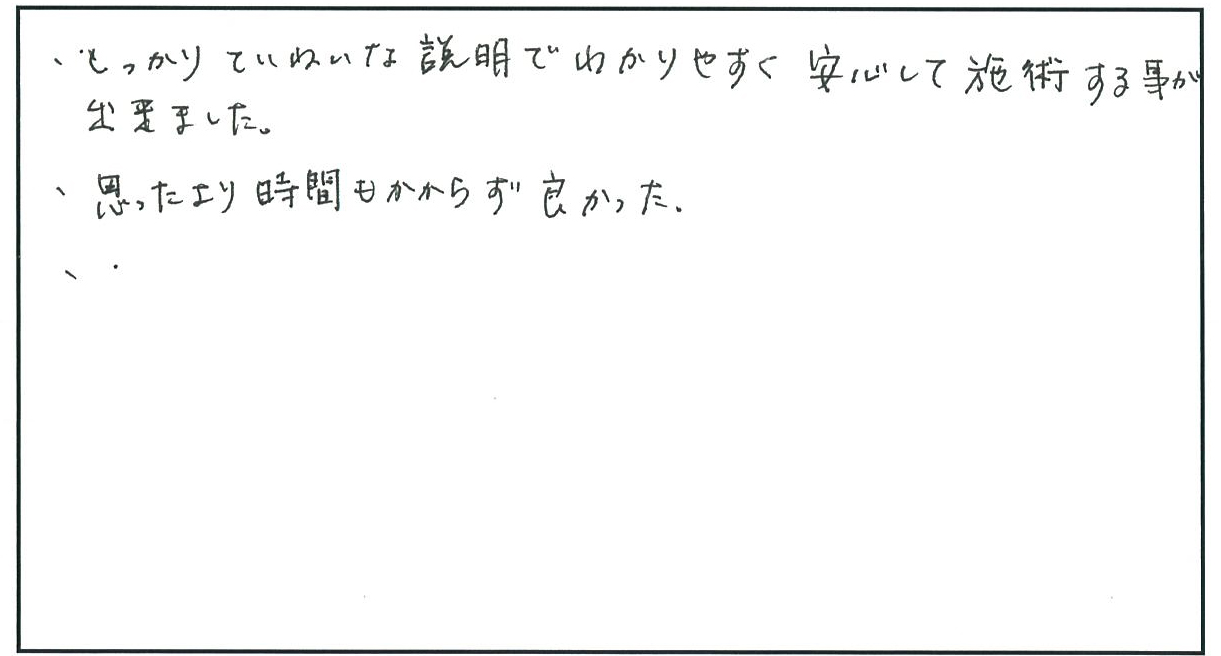 、しっかりていねいな説明でわかりやすく安心して施術する事が
出来ました。
、思ったより時間もかからず良かった.
、.